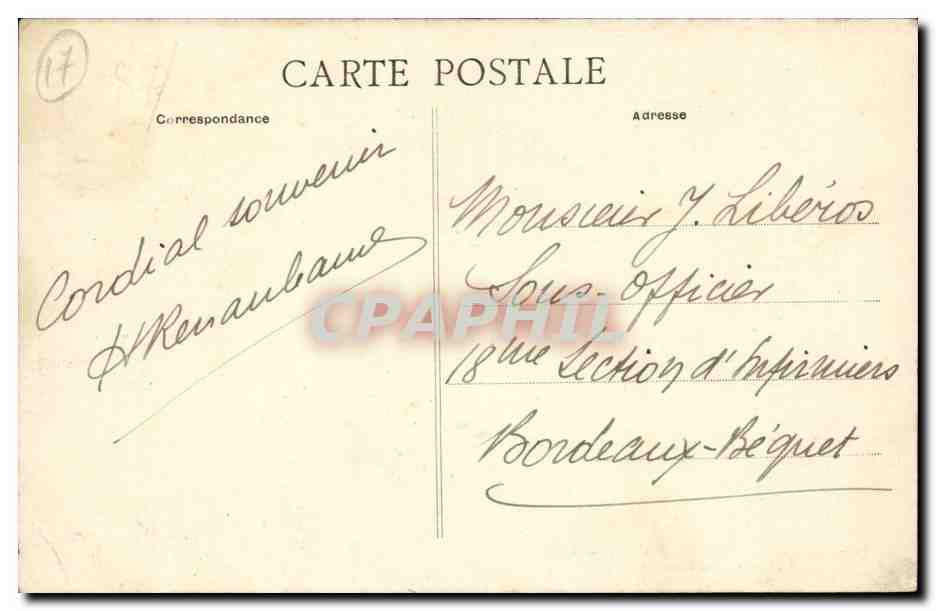 17
CARTE POSTALE
Correspondance
Cordial souvenir
Adresse
Monsieur J. Libéros
Sous-Officier
18ème Section d'Infirmiers
Bordeaux-Béquet
CPAPHIL